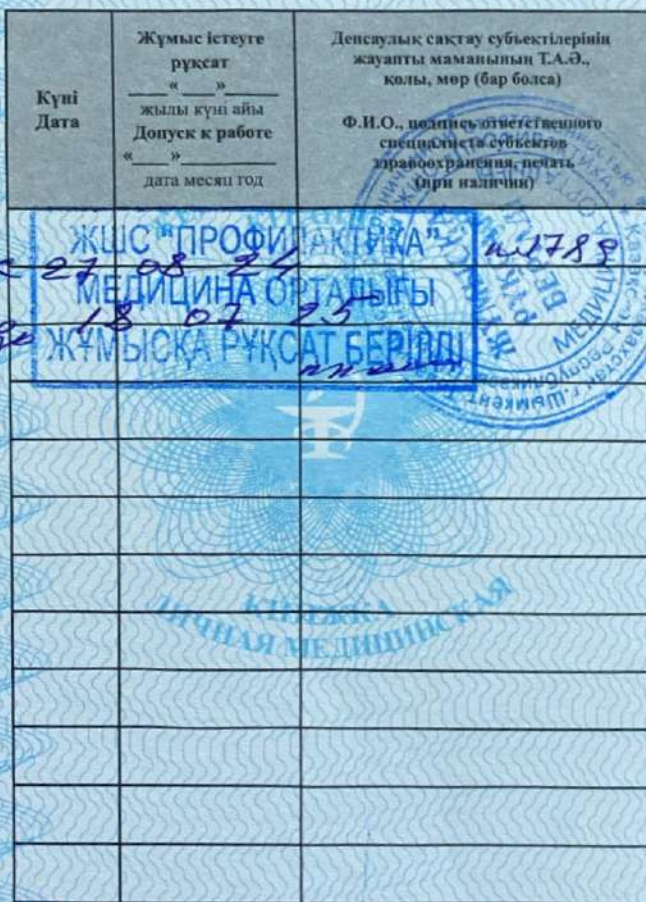 Күні
Дата
Жұмыс істеуге
рұқсат
___«___»_____
жылы күні айы
Допуск к работе
«___»__________
дата месяц год
Денсаулық сақтау субъектілерінің
жауапты маманының Т.А.Ә.,
қолы, мөр (бар болса)
Ф.И.О., подпись ответственного
специалиста субъектов
здравоохранения, печать
(при наличии)
ЖШС "ПРОФИЛАКТИКА"
МЕДИЦИНА ОРТАЛЫҒЫ
ЖҰМЫСҚА РҰҚСАТ БЕРІЛДІ
с 27 08 24
до 18 07 25
1789
ЖҰМЫСҚА
РҰҚСАТ
г.Шымкент
КНИЖКА
ЛИЧНАЯ МЕДИЦИНСКАЯ